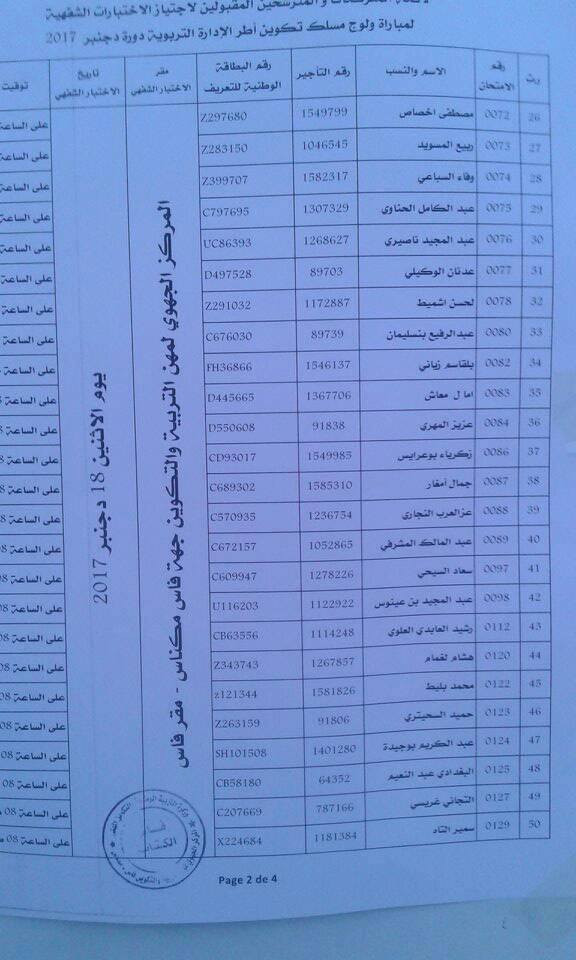 المقبولين لاجتياز الاختبارات الشفهية
لمباراة ولوج مسلك تكوين أطر الإدارة التربوية دورة دجنبر 2017
رت رقم الامتحان الاسم والنسب رقم التأجير رقم البطاقة الوطنية للتعريف مقر الاختبار الشفهي تاريخ الاختبار الشفهي توقيت
26 0072 مصطفى اخصاص 1549799 Z297680 على الساعة
27 0073 ربيع المسويد 1046545 Z283150 على الساعة
28 0074 وفاء السباعي 1582317 Z399707 على الساعة
29 0075 عبد الكامل الحناوي 1307329 C797695 على الساعة
30 0076 عبد المجيد ناصيري 1268627 UC86393 على الساعة
31 0077 عدنان الوكيلي 89703 D497528 على الساعة
32 0078 لحسن اشميط 1172887 Z291032 على الساعة
33 0080 عبدالرفيع بنسليمان 89739 C676030 على الساعة
34 0082 بلقاسم زياني 1546137 FH36866 على الساعة
35 0083 اما ل معاش 1367706 D445665 على الساعة
36 0084 عزيز المهري 91838 D550608 على الساعة
37 0086 زكرياء بوعرايس 1549985 CD93017 على الساعة
38 0087 جمال أمغار 1585310 C689302 على الساعة
39 0088 عزالعرب النجاري 1236754 C570935 على الساعة
40 0089 عبد المالك المشرفي 1052865 C672157 على الساعة
41 0097 سعاد السيحي 1278226 C609947 على الساعة
42 0098 عبد المجيد بن عينوس 1122922 U116203 على الساعة
43 0112 رشيد العابدي العلوي 1114248 CB63556 على الساعة
44 0120 هشام لغمام 1267857 Z343743 على الساعة 08
45 0122 محمد بليط 1581826 z121344 على الساعة 08
46 0123 حميد السحيتري 91806 Z263159 على الساعة 08
47 0124 عبد الكريم بوجيدة 1401280 SH101508 على الساعة 08
48 0125 البغدادي عبد النعيم 64352 CB58180 على الساعة 08
49 0127 التجاني غريسي 787166 C207669 على الساعة 08
50 0129 سمير التاد 1181384 X224684 على الساعة 08
المركز الجهوي لمهن التربية والتكوين جهة فاس مكناس - مقر فاس
يوم الاثنين 18 دجنبر 2017
Page 2 de 4